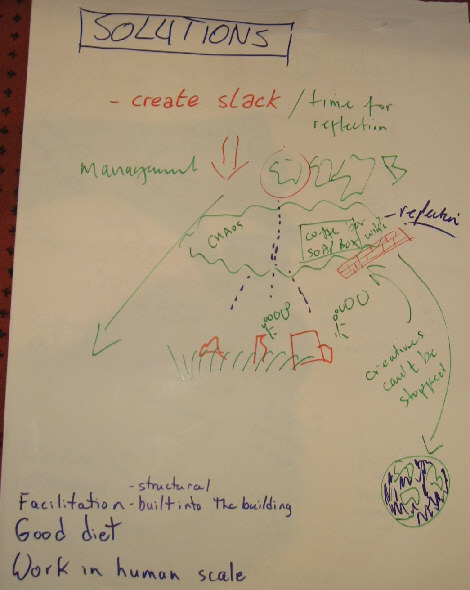 SOLUTIONS
- create slack / time for
reflection
management
CHAOS
SOAP BOX
- reflection
creatives
can't be
stopped
- structural
Facilitation - built into the building
Good diet
Work in human scale